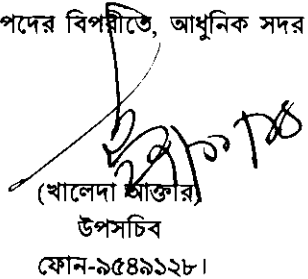 পদের বিপরীতে, আধুনিক সদর
(খালেদা আক্তার)
উপসচিব
ফোন-৯৫৪৯১২৮।